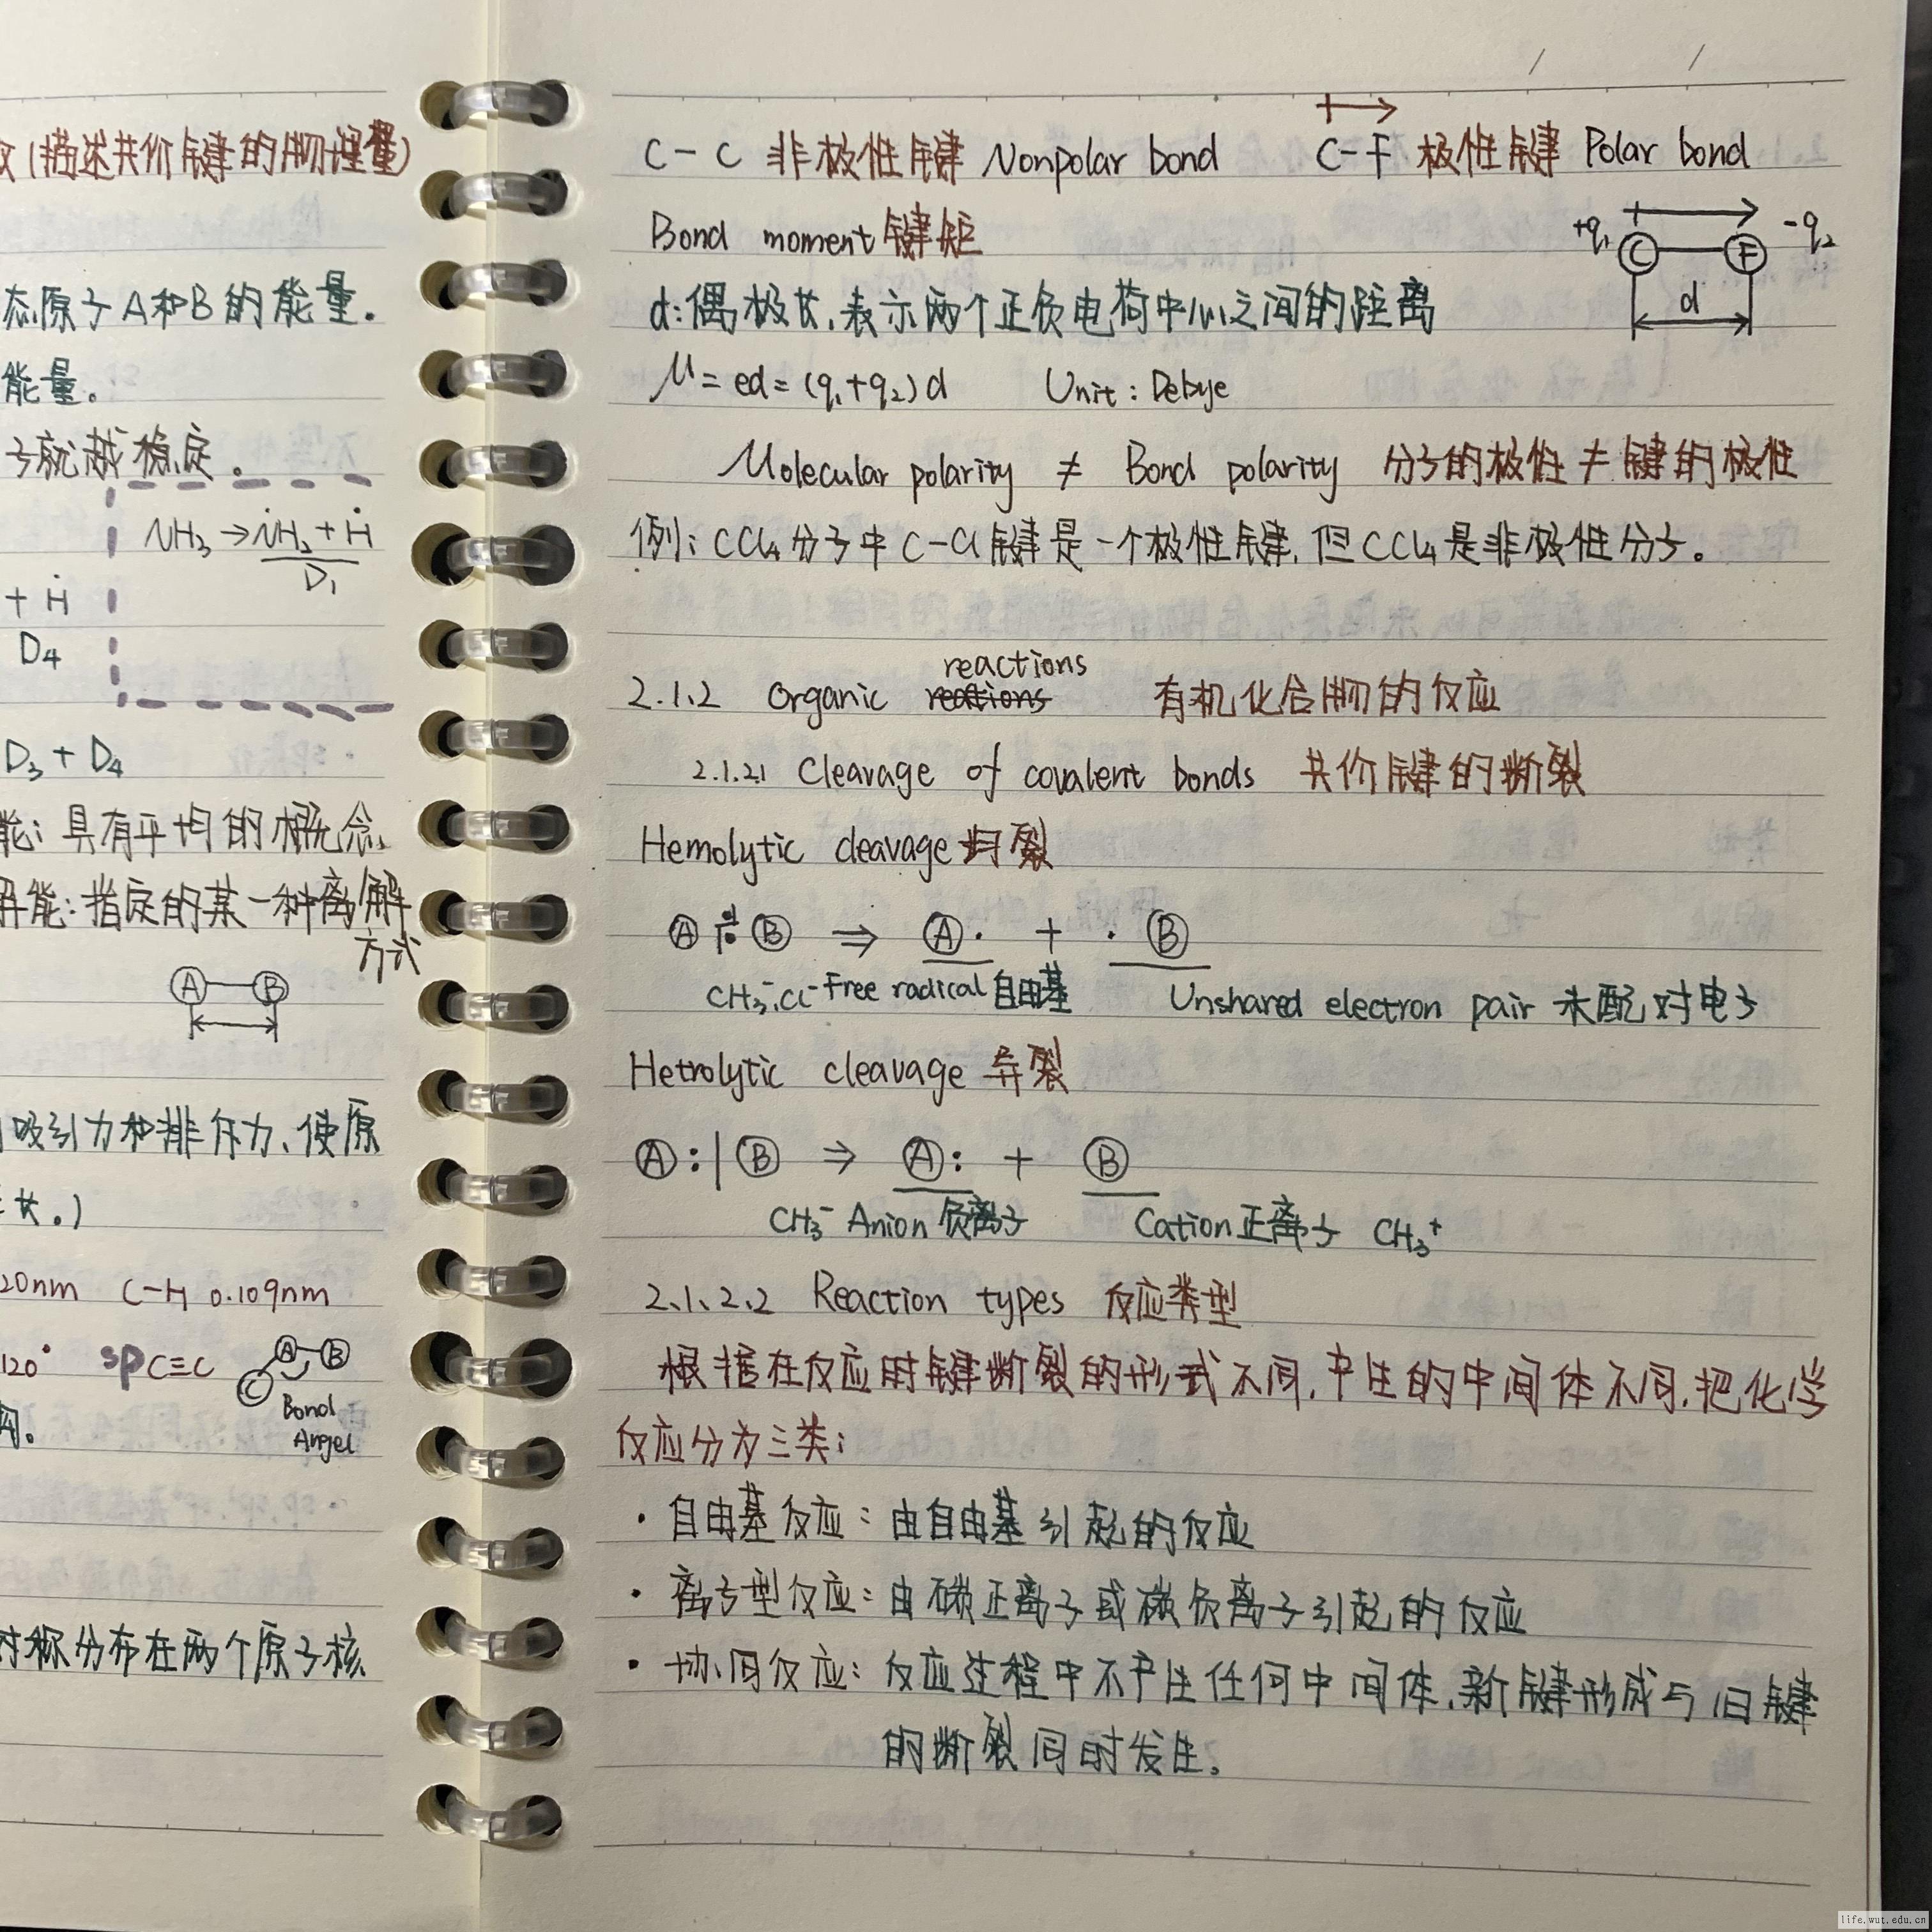 (描述共价键的物理量)
态原子A和B的能量.
能量。
子就越稳定.
NH₃→ṄH₂+Ḣ
D₁
+ Ḣ
D₄
D₃+D₄
能:具有平均的概念.
解能:指定的某一种离解
方式
A B
吸引力和排斥力、使原
长.)
20nm C-H 0.109nm
120° sp C≡C A B
C Bond
Angel
构。
对称分布在两个原子核
C-C 非极性键 Nonpolar bond C-F 极性键 Polar bond
Bond moment 键矩
+q₁ C F -q₂
d
d:偶极长.表示两个正负电荷中心之间的距离
μ=ed=(q₁+q₂)d Unit:Debye
Molecular polarity ≠ Bond polarity 分子的极性≠键的极性
例:CCl₄分子中C-Cl键是一个极性键,但CCl₄是非极性分子。
reactions
2.1.2 Organic reactions 有机化合物的反应
2.1.2.1 Cleavage of covalent bonds 共价键的断裂
Hemolytic cleavage 均裂
A B ⇒ A· + ·B
CH₃⁻.Cl⁻ Free radical 自由基 Unshared electron pair 未配对电子
Hetrolytic cleavage 异裂
A:|B ⇒ A: + B
CH₃⁻ Anion 负离子 Cation 正离子 CH₃⁺
2.1.2.2 Reaction types 反应类型
根据在反应时键断裂的形式不同,产生的中间体不同,把化学
反应分为三类:
·自由基反应:由自由基引起的反应
·离子型反应:由碳正离子或碳负离子引起的反应
·协同反应:反应过程中不产生任何中间体.新键形成与旧键
的断裂同时发生.
life.wut.edu.cn